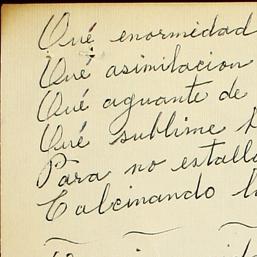 Qué enormidad
Qué asimilacion
Qué aguante de
Qué sublime
Para no estall
Calcinando l